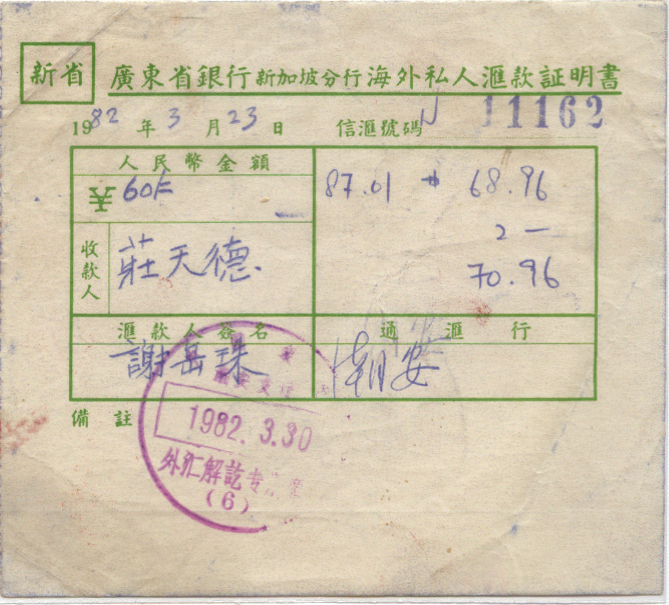 新省 廣東省銀行新加坡分行海外私人滙款証明書
1982年3月23日 信滙號碼 N 11162
人民幣金額
60 87.01 68.96
2 —
收款人 莊天德 70.96
滙款人簽名 通滙行
謝岳珠 潮安
備註
1982.3.30
外汇解訖专
(6)